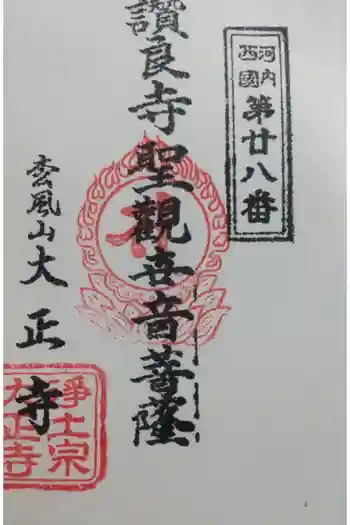 河内
西國
第廿八番
讃良寺聖觀世音菩薩
松風山大正寺
淨土宗
大正寺